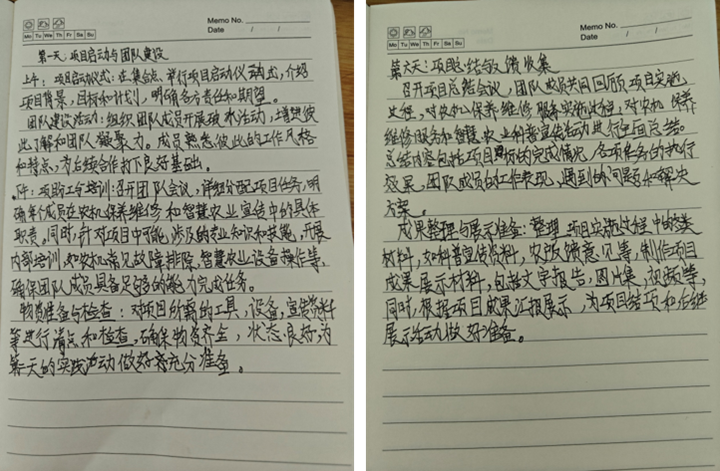 Memo No.
Mo Tu We Th Fr Sa Su
Date / /
第一天：项目启动与团队建设
上午：项目启动仪式：在集合点，举行项目启动仪式，介绍
项目背景，目标和计划，明确各方责任和期望。
团队建设活动：组织团队成员开展破冰活动，增进彼
此了解和团队凝聚力。成员熟悉彼此的工作风格
和特点，为后续合作打下良好基础。
下午：项目工作培训：召开团队会议，详细分配项目任务，明
确每个成员在农机保养维修和智慧农业宣传中的具体
职责。同时，针对项目中可能涉及的专业知识和技能，开展
内部培训，如农机常见故障排除，智慧农业设备操作等，
确保团队成员具备足够的能力完成任务。
物资准备与检查：对项目所需的工具，设备，宣传资料
等进行清点和检查，确保物资齐全，状态良好，为
第一天的实践活动做好充分准备。
Memo No.
Mo Tu We Th Fr Sa Su
Date / /
第六天：项目总结与反馈收集
召开项目总结会议，团队成员共同回顾项目实施
过程。对农机保养维修服务实施过程，对农机保养
维修服务和智慧农业科普宣传活动进行全面总结。
总结内容包括项目目标的完成情况，各项任务的执行
效果，团队成员的工作表现，遇到的问题和解决
方案。
成果整理与展示准备：整理项目实施过程中的各类
材料，如科普宣传资料，农民反馈意见等，制作项目
成果展示材料，包括文字报告，图片集，视频等，
同时，根据项目成果汇报展示，为项目结项和后继
展示活动做好准备。